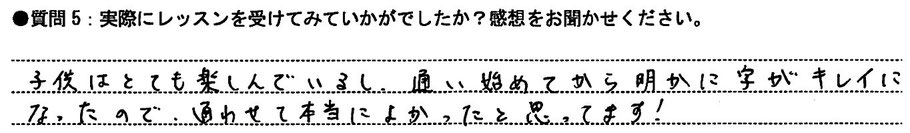 ●質問5：実際にレッスンを受けてみていかがでしたか？感想をお聞かせください。
子供はとても楽しんでいるし、通い始めてから明かに字がキレイに
なったので、通わせて本当によかったと思ってます！